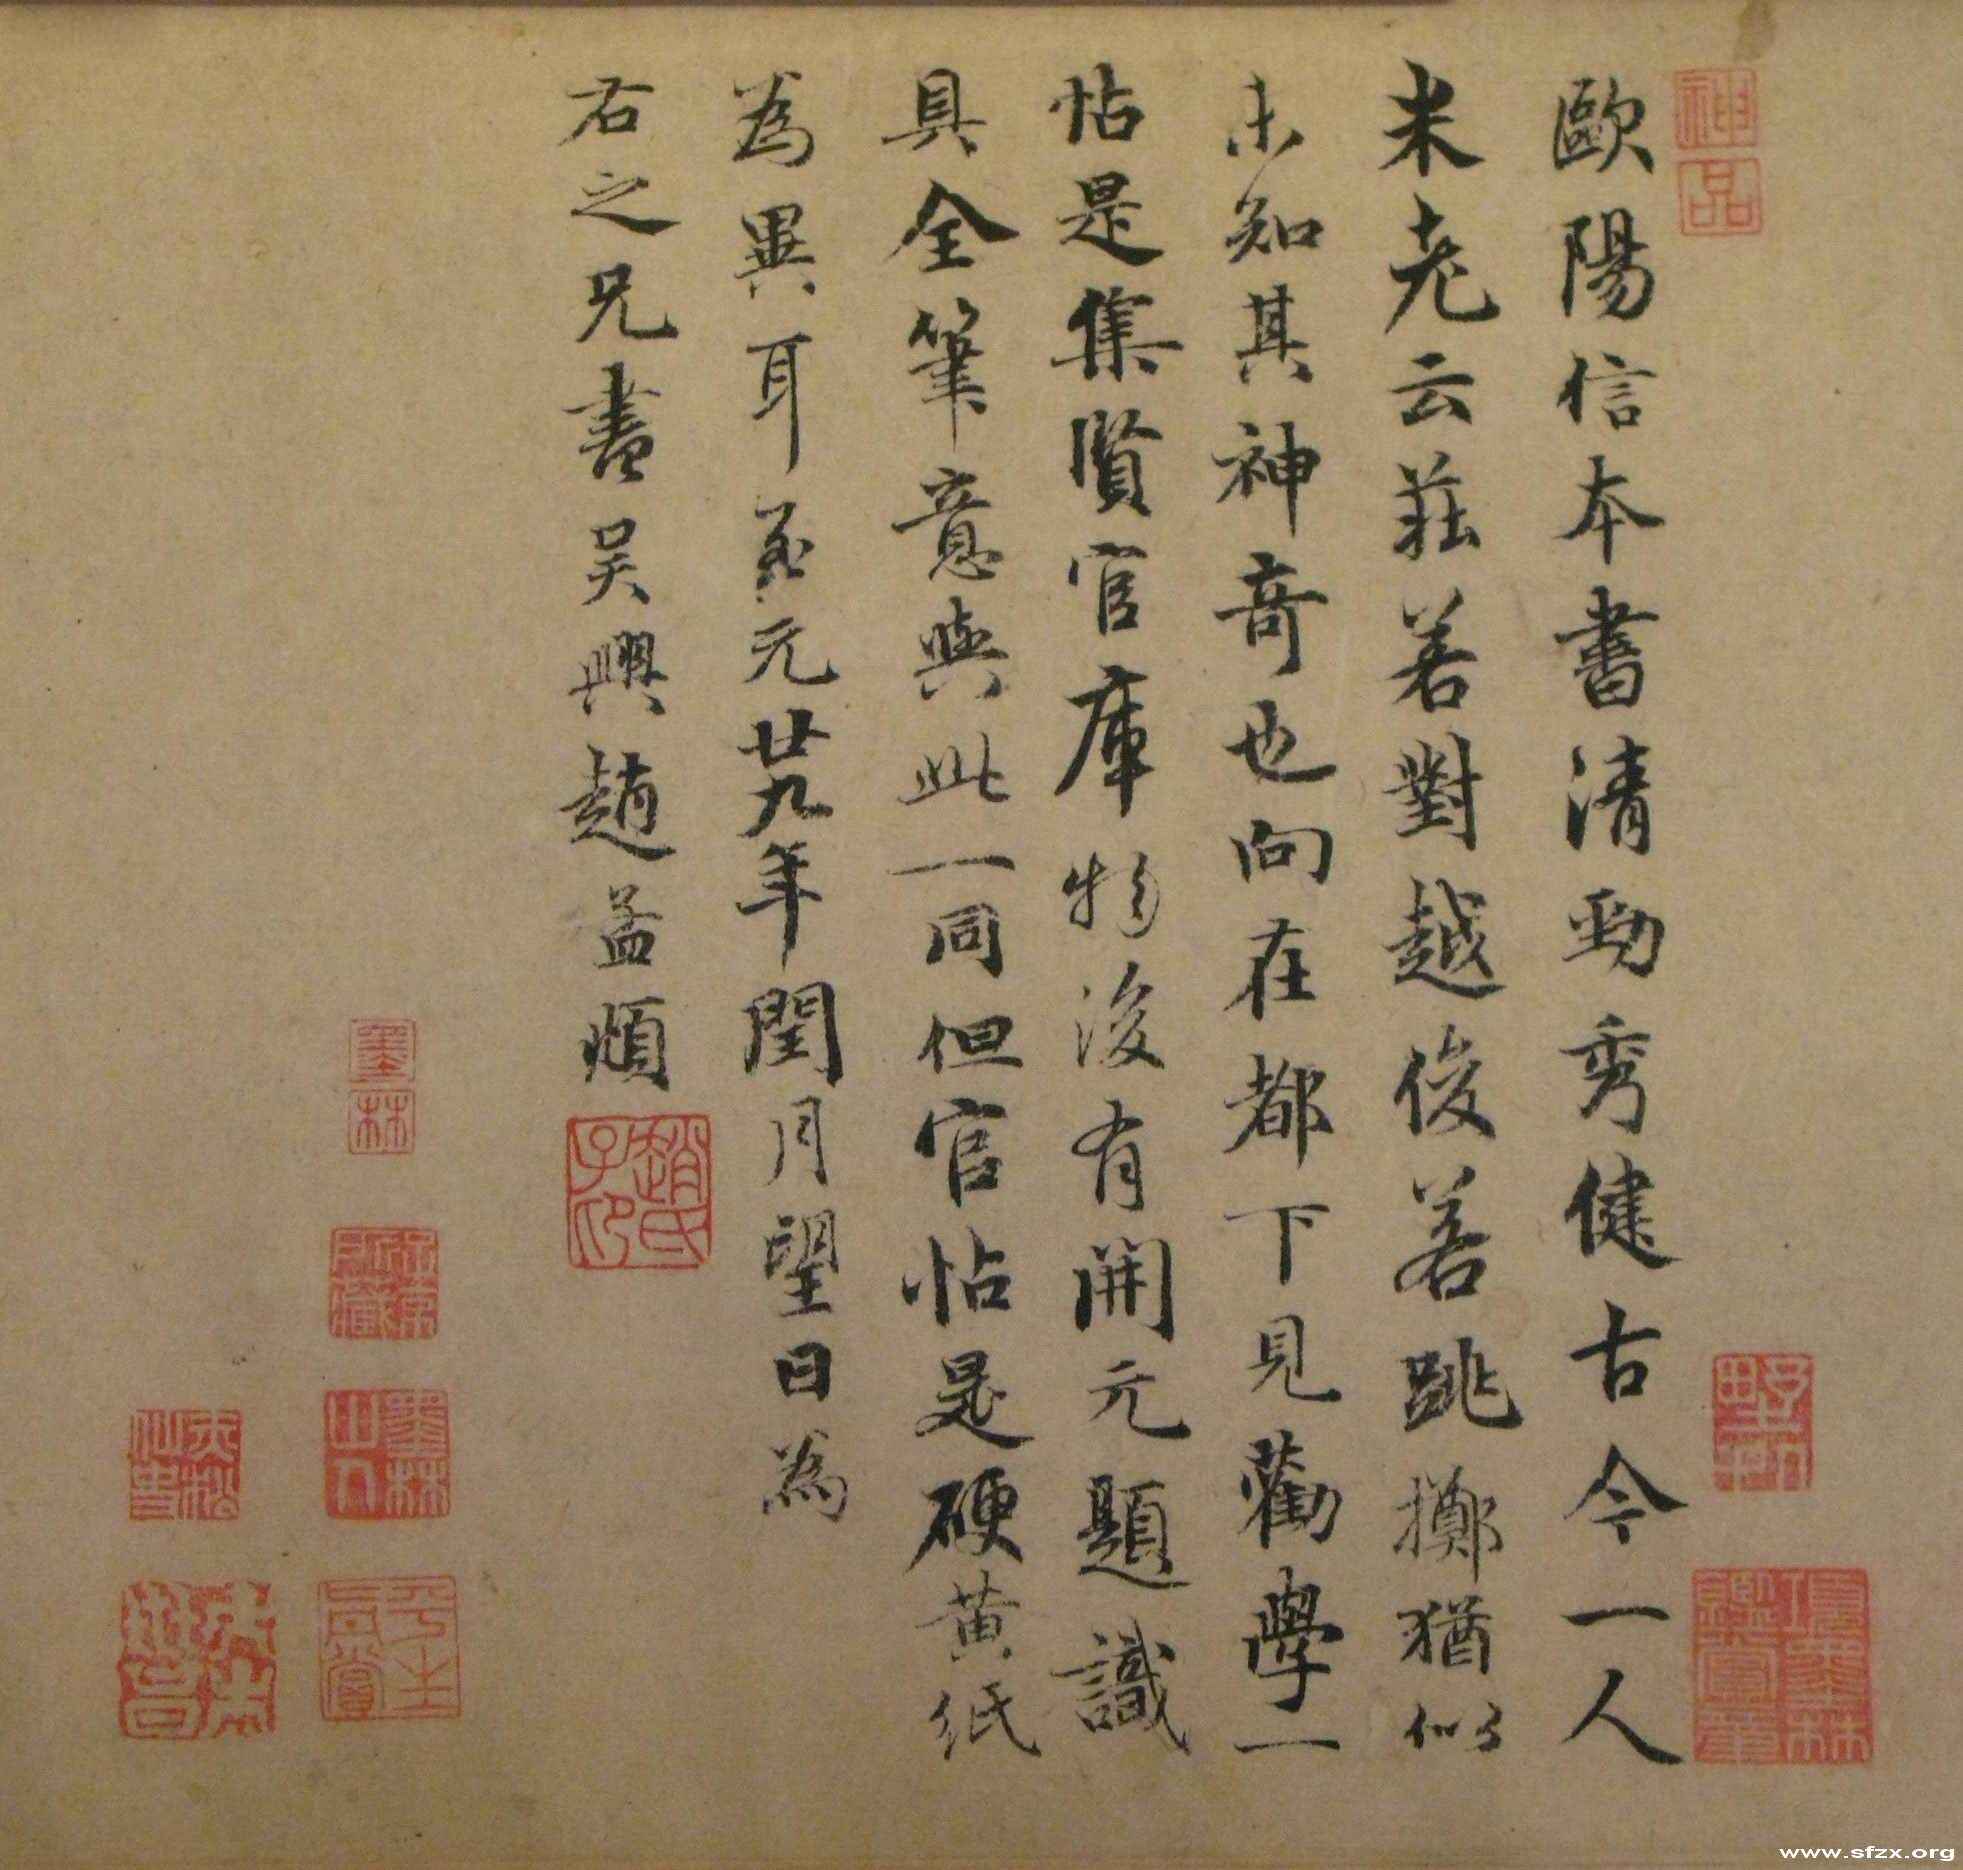 歐陽信本書清勁秀健古今一人
米老云莊若對越俊若跳擲猶似
未知其神奇也向在都下見勸學一
帖是集賢官庫物後有開元題識
具全筆意與此一同但官帖是硬黄紙
為異耳至元廿九年閏月望日為
右之兄書吳興趙孟頫
神品
趙氏子印
墨林
墨林山人
平生真賞
項墨林鑑賞章
www.sfzx.org